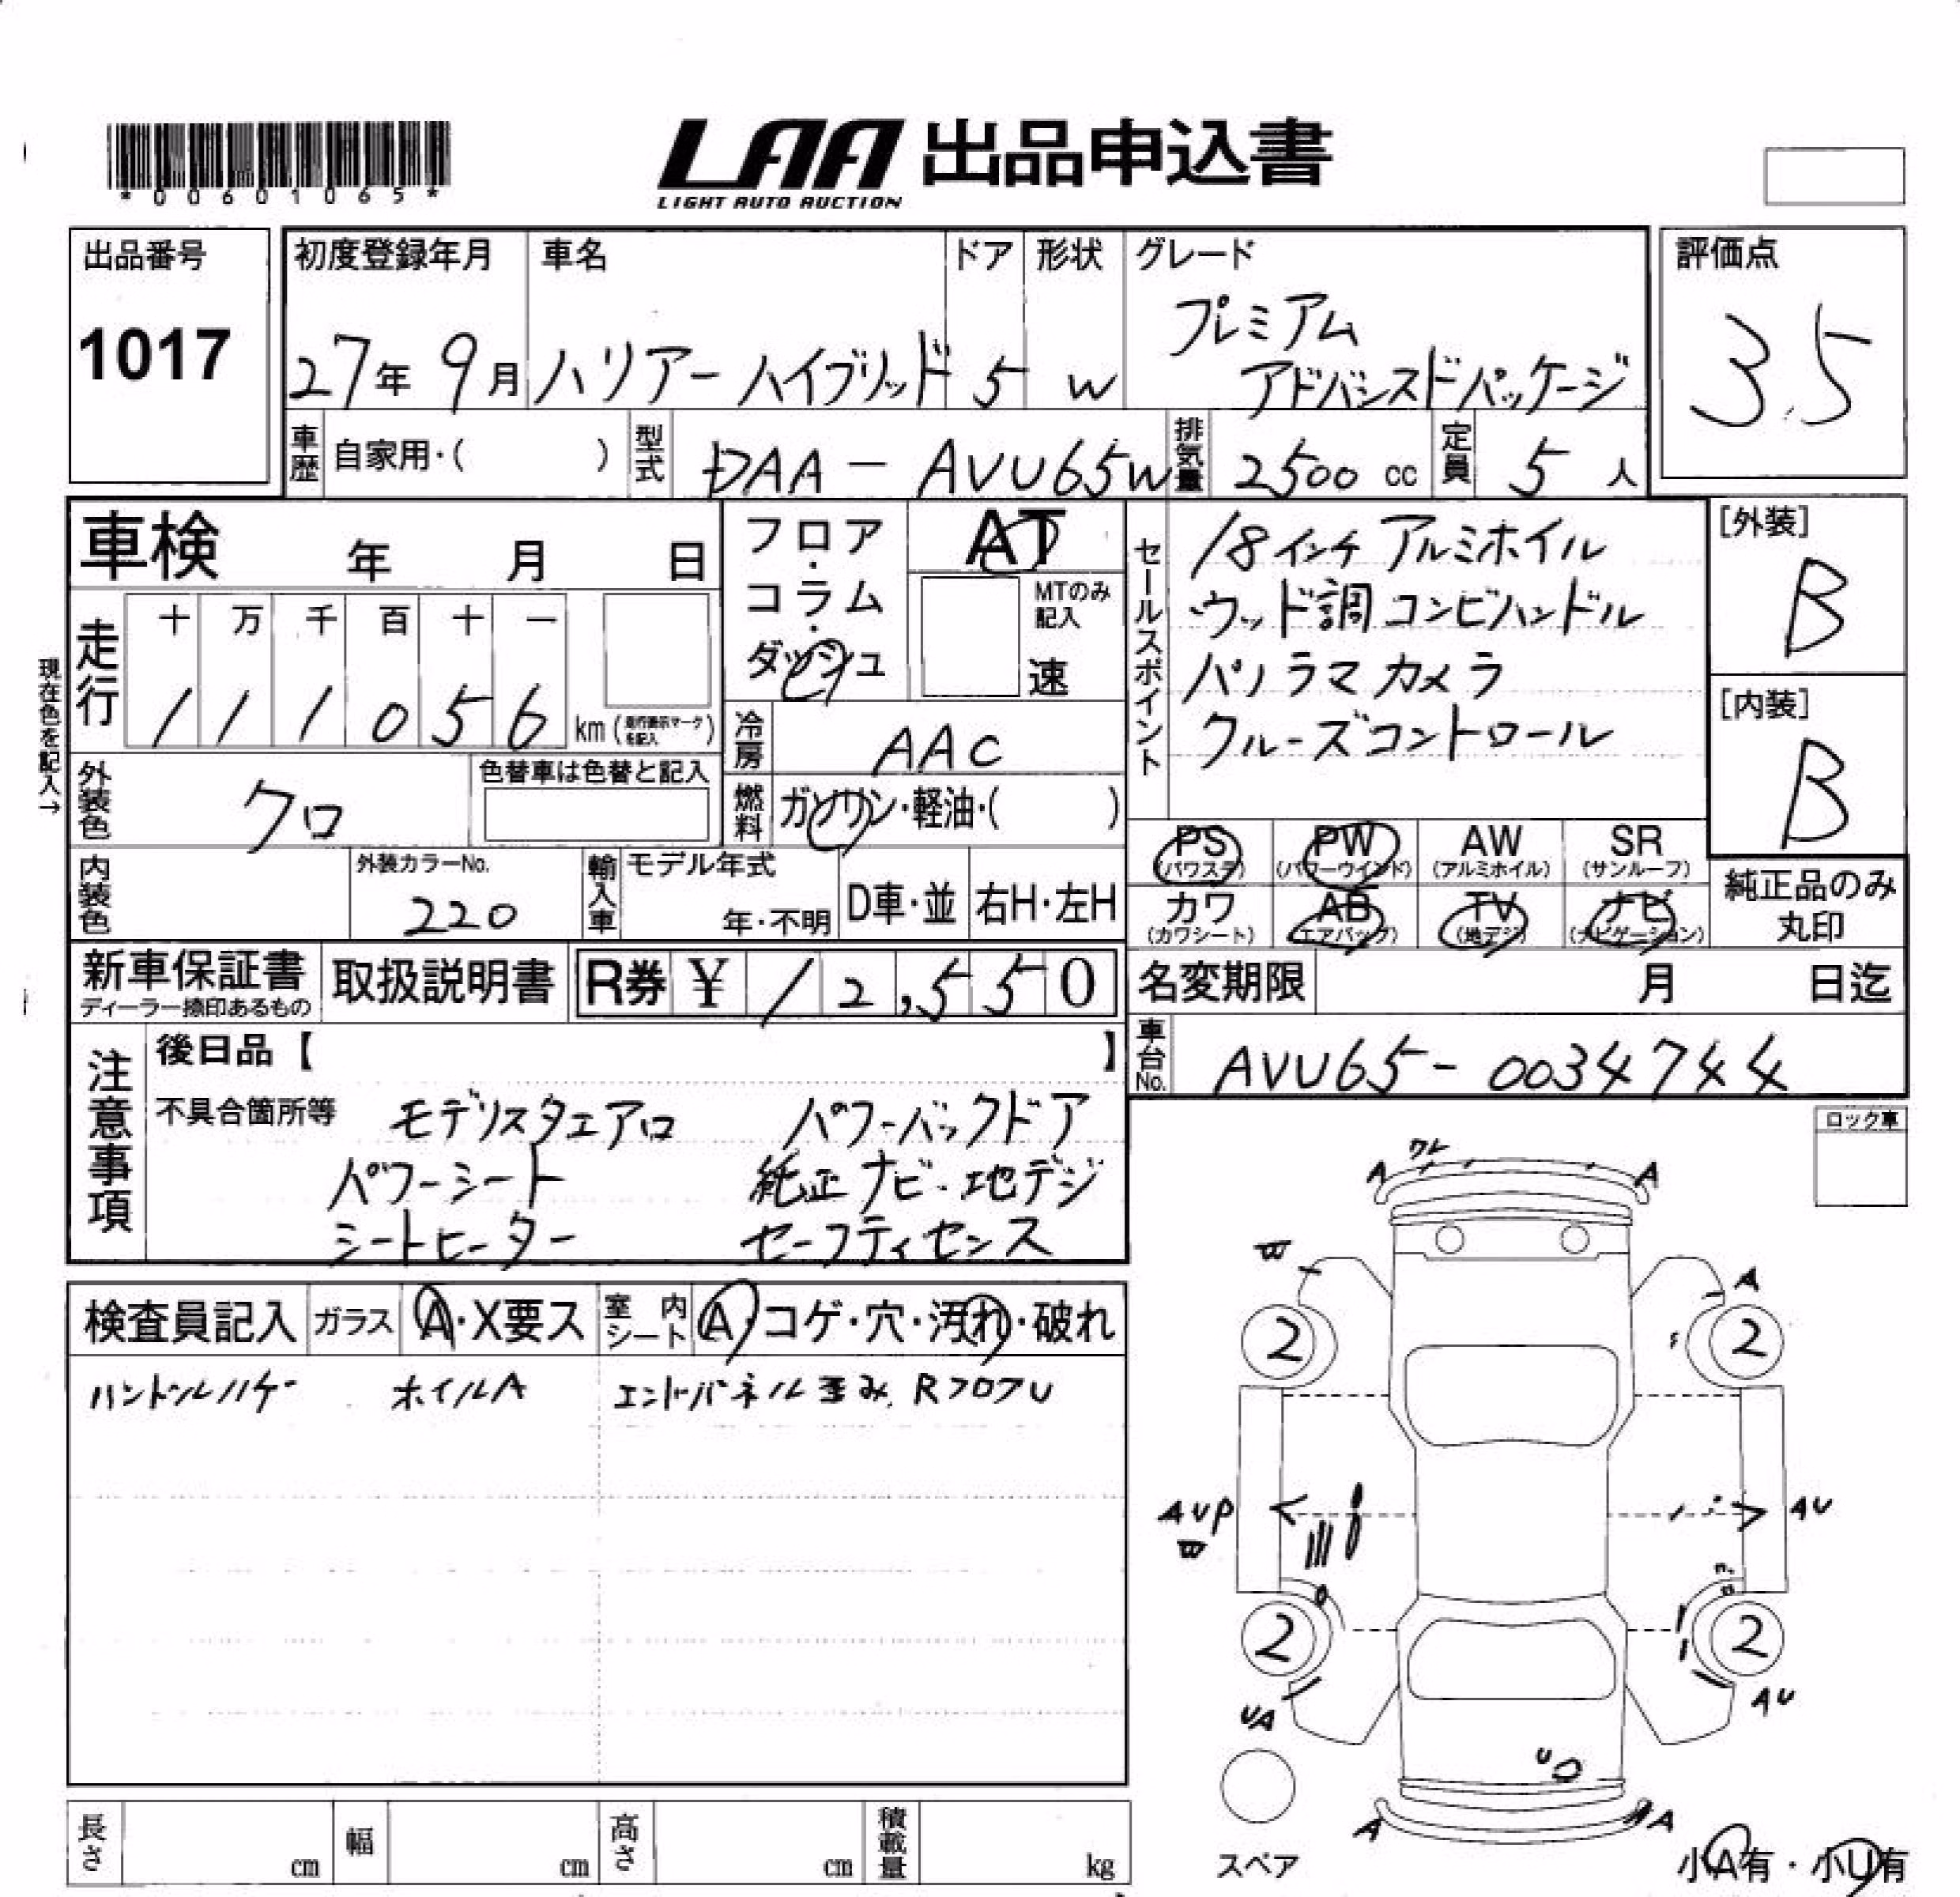 *00601065*
LAA 出品申込書
LIGHT AUTO AUCTION
出品番号
1017
初度登録年月
27年 9月
車名
ハリアー ハイブリッド
ドア
5
形状
W
グレード
プレミアム
アドバンスドパッケージ
評価点
3.5
車歴 自家用・( )
型式 DAA - AVU65W
排気量 2500 cc
定員 5 人
車検 年 月 日
フロア・コラム・ダッシュ
AT
MTのみ記入
速
セールスポイント
18インチ アルミホイル
ウッド調 コンビハンドル
パノラマカメラ
クルーズコントロール
[外装]
B
[内装]
B
現在色を記入→
走行
十 万 千 百 十 一
1 1 1 0 5 6 km (走行表示マークを記入)
冷房 AAC
外装色 クロ
色替車は色替と記入
燃料 ガソリン・軽油・( )
内装色
外装カラーNo.
220
輸入車
モデル年式
年・不明
D車・並
右H・左H
PS (パワステ)
PW (パワーウインド)
AW (アルミホイル)
SR (サンルーフ)
カワ (カワシート)
AB (エアバック)
TV (地デジ)
ナビ (ナビゲーション)
純正品のみ
丸印
新車保証書
ディーラー捺印あるもの
取扱説明書
R券 ¥ 12,550
名変期限 月 日迄
車台No. AVU65-0034744
注意事項
後日品【 】
不具合箇所等
モデリスタエアロ パワーバックドア
パワーシート 純正ナビ・地デジ
シートヒーター セーフティセンス
ロック車
検査員記入
ガラス A・X要ス
室内シート A・コゲ・穴・汚れ・破れ
ハンドルハゲ ホイルA エンドパネル歪み. RフロアU
A ワレ A
W A
2 2
AUP W AU
2 2
UA AU
U
A A
スペア
小A有・小U有
長さ cm
幅 cm
高さ cm
積載量 kg